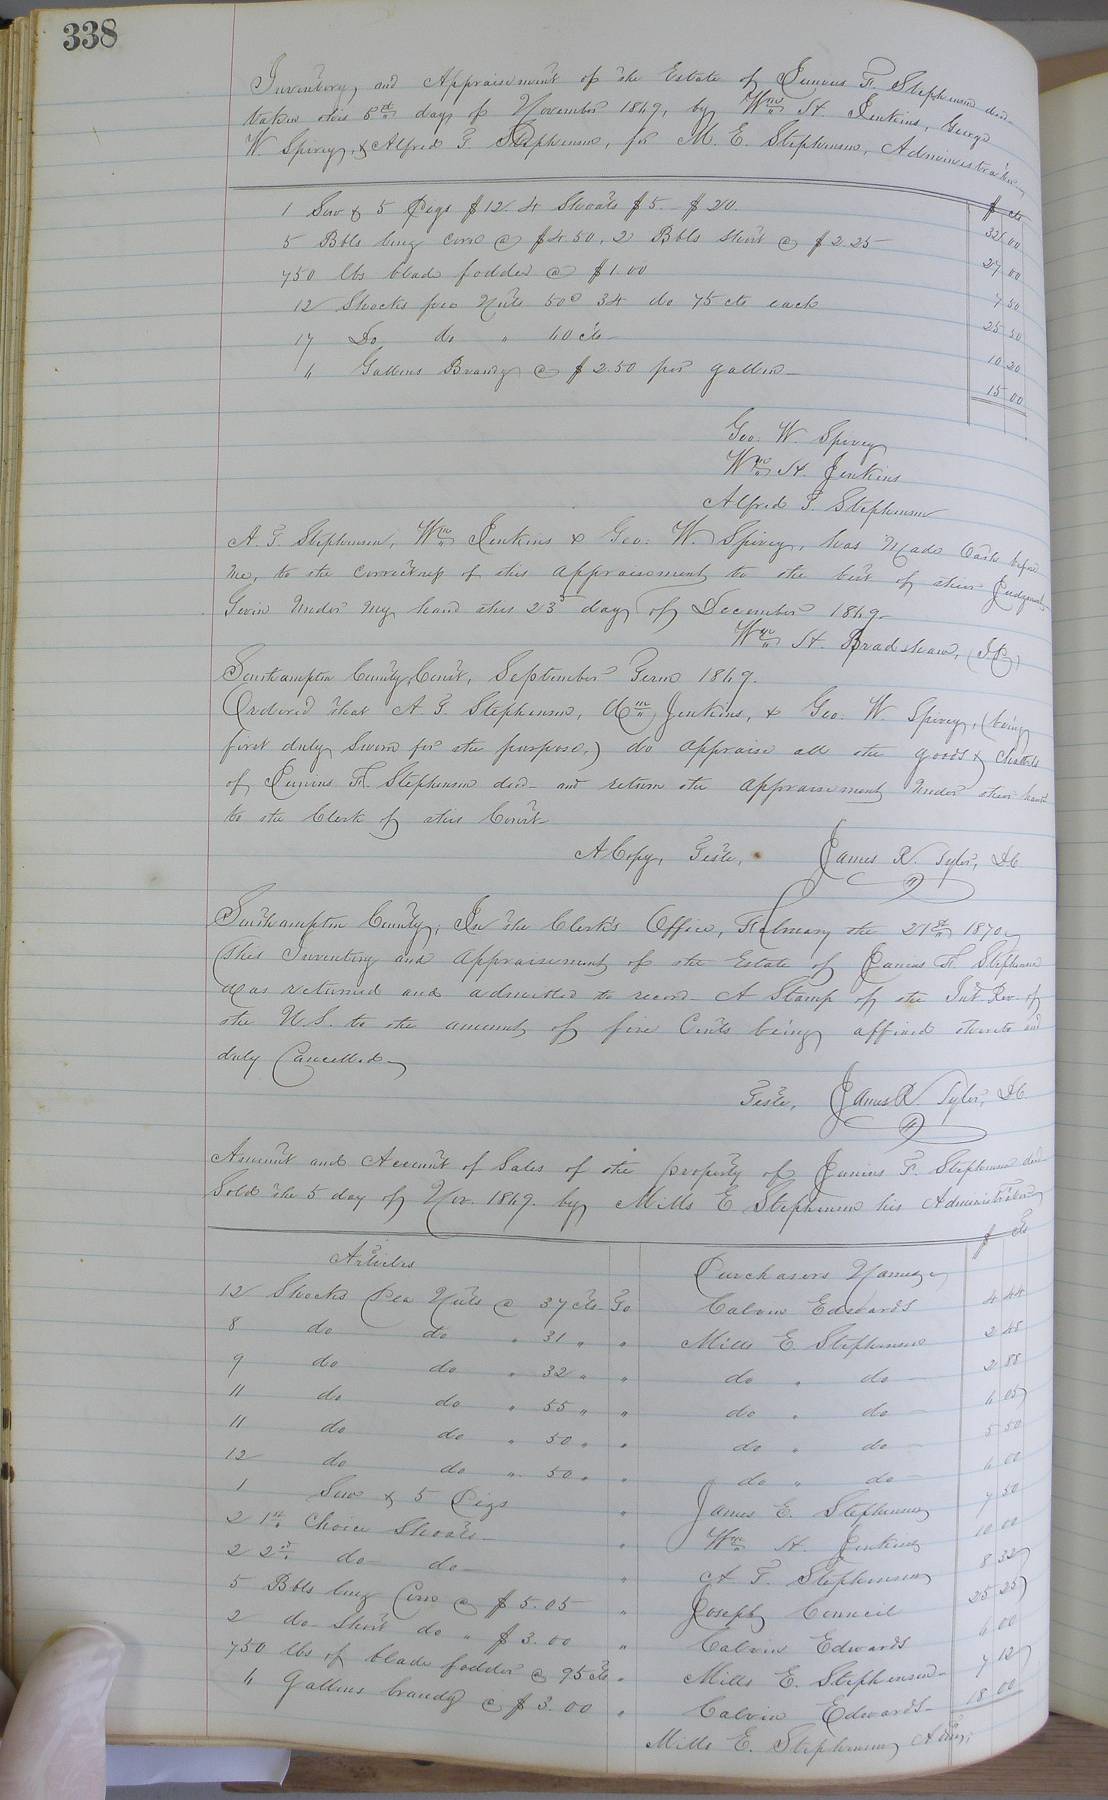 338
Inventory and Appraisement of the Estate of Junius F. Stephenson decd
taken this 5th day of November 1869, by Wm H. Jenkins, George
W. Spivey, & Alfred T. Stephenson, for M. E. Stephenson, Administrator
$ cts
1 Sow & 5 Pigs $12. 4 Shoats $5 - $20. 32 00
5 Bbls long corn @ $4.50, 2 Bbls Short @ $2.25 27 00
750 lbs blade fodder @ $1.00 7 50
12 Shocks pea Nuts 34 do 75 cts each 25 50
17 Do do " 60 cts 10 20
6 Gallons Brandy @ $2.50 per gallon 15 00
Geo: W. Spivey
Wm H. Jenkins
Alfred T. Stephenson
A. T. Stephenson, Wm Jenkins & Geo: W. Spivey, has Made Oath before
me, to the correctness of this appraisement to the best of their Judgments
Given Under My hand this 23d day of December 1869.
Wm H. Bradshaw, (J.P.)
Southampton County Court, September Term 1869.
Ordered that A. T. Stephenson, Wm Jenkins, & Geo: W. Spivey, (being
first duly Sworn for the purpose,) do appraise all the goods & Chattels
of Junius F. Stephenson decd and return the appraisement Under their hands
to the Clerk of this Court
A Copy, Teste, James R. Tyler, D.C.
Southampton County; In the Clerk's Office, February the 21st 1870
this Inventory and appraisement of the Estate of Junius F. Stephenson
was returned and admitted to record. A Stamp of the Int Rev of
the U.S. to the amount of five Cents being affixed thereto and
duly Cancelled
Teste, James R. Tyler, D.C.
Amount and Account of Sales of the property of Junius F. Stephenson decd
Sold the 5 day of Nov. 1869. by Mills E Stephenson his Administrator
Articles Purchasers Names $ cts
12 Shocks Pea Nuts @ 37 cts To Calvin Edwards 4 44
8 do do " 31 " " Mills E. Stephenson 2 48
9 do do " 32 " " do " do 2 88
11 do do " 55 " " do " do 6 05
11 do do " 50 " " do " do 5 50
12 do do " 50 " " do " do 6 00
1 Sow & 5 Pigs " James E. Stephenson 7 50
2 1st Choice Shoats " Wm H. Jenkins 10 00
2 2d do do " A T. Stephenson 8 32
5 Bbls long Corn @ $5.05 " Joseph Council 25 25
2 do Short do " $3.00 " Calvin Edwards 6 00
750 lbs of blade fodder @ 95 cts " Mills E. Stephenson 7 12
6 Gallons brandy @ $3.00 " Calvin Edwards 18 00
Mills E. Stephenson Admr